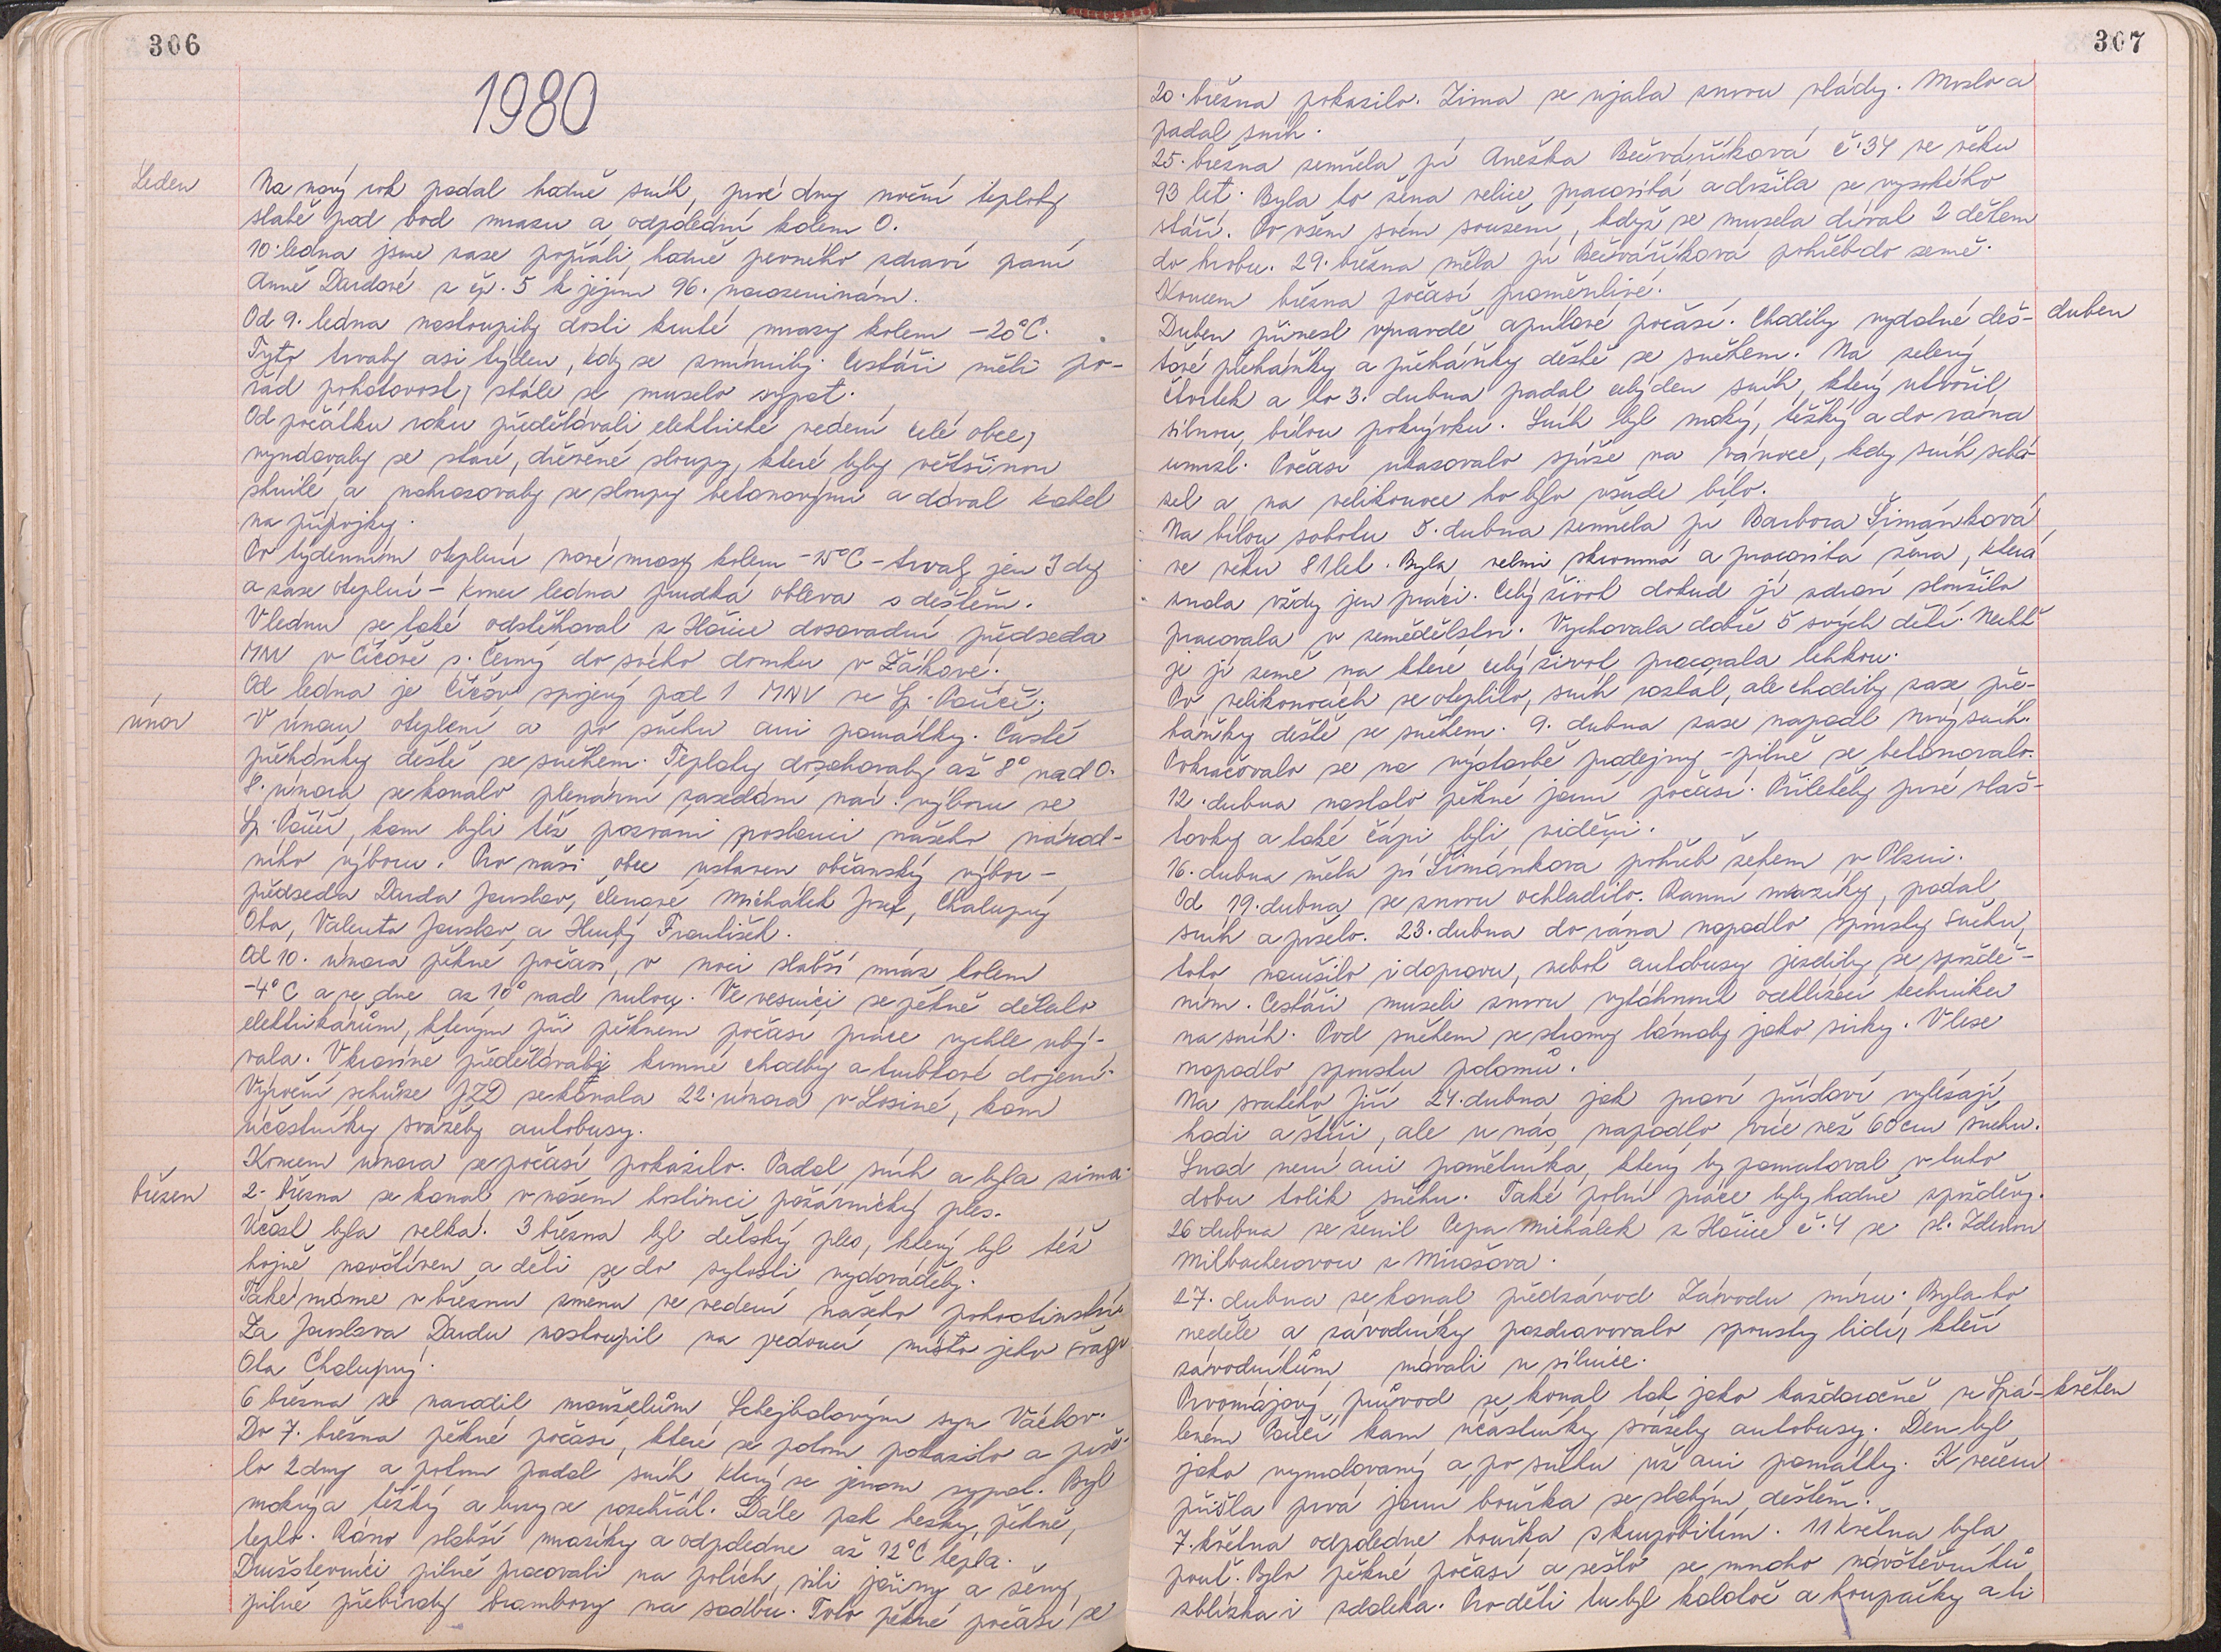 306
1980
Leden
Na nový rok padal hodně sníh, prvé dny noční teploty
slabě pod bod mrazu a odpolední kolem 0.
10. ledna jsme zase popřáli hodně pevného zdraví paní
Anně Dardové z čp. 5 k jejím 96. narozeninám.
Od 9. ledna nastoupily dosti kruté mrazy kolem -20°C.
Tyto trvaly asi týden, kdy se zmírnily. Cestáři měli po-
řád pohotovost, stále se muselo sypat.
Od počátku roku předělávali elektrické vedení celé obce,
vyndavaly se staré, dřevěné sloupy, které byly většinou
shnilé, a nahrazovaly se sloupy betonovými a dával kabel
na přípojky.
Po týdenním oteplení nové mrazy kolem -15°C - trvaly jen 3 dny
a zase oteplení - konec ledna prudká obleva s deštěm.
V lednu se také odstěhoval z Hořice dosavadní předseda
MNV v Číčově s. Černý do svého domku v Žákavé.
Od ledna je Číčov spojený pod 1 MNV ve Sp. Poříčí.
únor
V únoru oteplení a po sněhu ani památky. Časté
přeháňky deště se sněhem. Teploty dosahovaly až 8° nad 0.
8. února se konalo plenární zasedání nár. výboru ve
Sp. Poříčí, kam byli též pozvani poslanci našeho národ-
ního výboru. Pro naši obec ustaven občanský výbor -
předseda Darda Jaroslav, členové Michálek Josef, Chalupný
Ota, Valenta Jaroslav, a Hrubý František.
Od 10. února pěkné počasí, v noci slabší mráz kolem
-4°C a ve dne až 10° nad nulou. Ve vesnici se pěkně dělalo
elektrikářům, kterým při pěkném počasí práce rychle ubý-
vala. V kravíně předělávaly krmné chodby a trubkové dojení.
Výroční schůze JZD se konala 22. února v Losiné, kam
účastníky svážely autobusy.
Koncem února se počasí pokazilo. Padal sníh a byla zima.
březen
2. března se konal v našem hostinci požárnický ples.
Účast byla velká. 3 března byl dětský ples, který byl též
hojně navštíven a děti se do sytosti vydováděly.
Také máme v březnu změnu ve vedení našeho pohostinství.
Za Jaroslava Dardu nastoupil na vedoucí místo jeho švagr
Ota Chalupný.
6 března se narodil manželům Schejbalovým syn Václav.
Do 7. března pěkné počasí, které se potom pokazilo a prše-
lo 2 dny a potom padal sníh který se jenom sypal. Byl
mokrý a těžký a brzy se rozehřál. Dále pak hezky, pěkně,
teplo. Ráno slabší mrazíky a odpoledne až 12°C tepla.
Družstevníci pilně pracovali na polích, sili jařiny a ženy
pilně přebíraly brambory na sadbu. Toto pěkné počasí se
307
20. března pokazilo. Zima se ujala znovu vlády. Mrzlo a
padal sníh.
25. března zemřela pí Anežka Bečvaříková č. 34 ve věku
93 let. Byla to žena velice pracovitá a dožila se vysokého
stáří. Po všem svém soužení, když se musela dívat 2 dětem
do hrobu. 29. března měla pí Bečvaříková pohřeb do země.
Koncem března počasí proměnlivé.
duben
Duben přinesl vpravdě aprílové počasí. Chodily vydatné deš-
ťové přeháňky a přeháňky deště se sněhem. Na zelený
čtvrtek a to 3. dubna padal celý den sníh, který utvořil
silnou bílou pokrývku. Sníh byl mokrý, těžký a do rána
umrzl. Počasí ukazovalo spíše na vánoce, kdy sníh schá-
zel a na velikonoce ho bylo všude bílo.
Na bílou sobotu 5. dubna zemřela pí Barbora Šimánková,
ve věku 81 let. Byla velmi skromná a pracovitá žena, která
znala vždy jen práci. Celý život dokud jí zdraví sloužilo
pracovala v zemědělství. Vychovala dobře 5 svých dětí. Nechť
je jí země na které celý život pracovala lehkou.
Po velikonocích se oteplilo, sníh roztál, ale chodily zase pře-
háňky deště se sněhem. 9. dubna zase napadl nový sníh.
Pokračovalo se na výstavbě prodejny - pilně se betonovalo.
12. dubna nastalo pěkné jarní počasí. Přiletěly prvé vlaš-
tovky a také čápi byli viděni.
16. dubna měla pí Šimánkova pohřeb žehem v Plzni.
Od 19. dubna se znovu ochladilo. Ranní mrazíky, padal
sníh a pršelo. 23. dubna do rána napadlo spousty sněhu,
toto narušilo i dopravu, neboť autobusy jezdily se spoždě-
ním. Cestáři museli znovu vytáhnout odklízecí techniku
na sníh. Pod sněhem se stromy lámaly jako sirky. V lese
napadlo spoustu polomů.
Na svatého Jiří 24. dubna jak praví přísloví vylézají
hadi a štíři, ale u nás napadlo více než 60 cm sněhu.
Snad není ani pamětníka, který by pamatoval v tuto
dobu tolik sněhu. Také polní práce byly hodně spožděny.
26 dubna se ženil Pepa Michálek z Hořice č. 4 se sl. Zdenou
Milbacherovou z Mirošova.
27. dubna se konal předzávod Závodu míru. Byla to
neděle a závodníky pozdravovalo spousty lidí, kteří
závodníkům mávali u silnice.
květen
Prvomájový průvod se konal tak jako každoročně ve Spá-
leném Poříčí kam účastníky svážely autobusy. Den byl
jako vymalovaný a po sněhu už ani památky. K večeru
přišla prvá jarní bouřka se slabým deštěm.
7. května odpoledne bouřka s krupobitím. 11 května byla
pouť. Bylo pěkné počasí a sešlo se mnoho návštěvníků
zblízka i zdaleka. Pro děti tu byl kolotoč a houpačky a ti